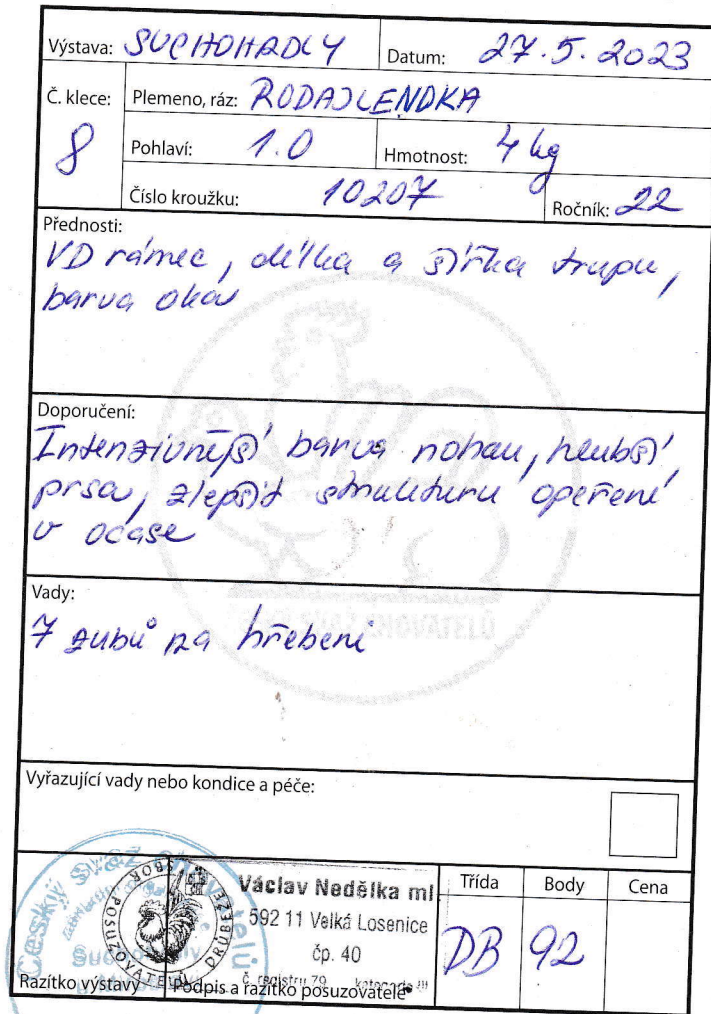 Výstava: SUCHOHRDLY Datum: 27.5.2023
Č. klece: 8
Plemeno, ráz: RODAJLENDKA
Pohlaví: 1.0 Hmotnost: 4 kg
Číslo kroužku: 10207 Ročník: 22
Přednosti:
VD rámec, délka a šířka trupu,
barva oka
Doporučení:
Intenzivnější barva nohau, hlubší
prsa, zlepšit strukturu opeření
v ocase
Vady:
7 zubů na hřebeni
Vyřazující vady nebo kondice a péče:
Český svaz
SBOR POSUZOVATELŮ DRŮBEŽE
Václav Nedělka ml.
592 11 Velká Losenice
čp. 40
č. registru 79
Razítko výstavy Podpis a razítko posuzovatele
Třída Body Cena
DB 92